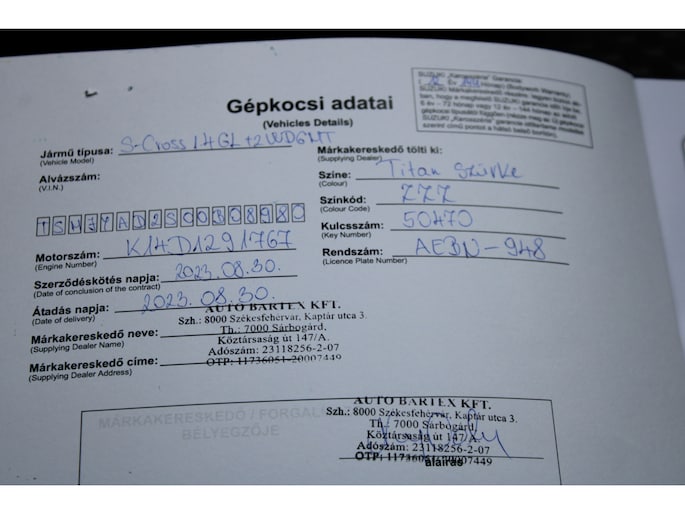 SUZUKI „Karosszéria” Garancia
Gépkocsi adatai
(Vehicles Details)
Jármű típusa: S-Cross 1.4 GL+ 2WD 6MT
(Vehicle Model)
Alvázszám:
(V.I.N.)
Motorszám: K14D1291767
(Engine Number)
Szerződéskötés napja: 2023.08.30.
(Date of conclusion of the contract)
Átadás napja: 2023.08.30.
(Date of delivery)
Márkakereskedő neve:
(Supplying Dealer Name)
Márkakereskedő címe:
(Supplying Dealer Address)
AUTO BARTEX KFT.
Szh.: 8000 Székesfehérvár, Kaptár utca 3.
Th.: 7000 Sárbogárd,
Köztársaság út 147/A.
Adószám: 23118256-2-07
OTP: 11736051-20007449
Márkakereskedő tölti ki:
(Supplying Dealer)
Színe: Titan Szürke
(Colour)
Színkód: ZZZ
(Colour Code)
Kulcsszám: 50470
(Key Number)
Rendszám: AEBN-948
(Licence Plate Number)
MÁRKAKERESKEDŐ / FORGAL
BÉLYEGZŐJE
AUTO BARTEX KFT.
Szh.: 8000 Székesfehérvár, Kaptár utca 3.
Th.: 7000 Sárbogárd,
Köztársaság út 147/A.
Adószám: 23118256-2-07
OTP: 11736051-20007449
aláírás